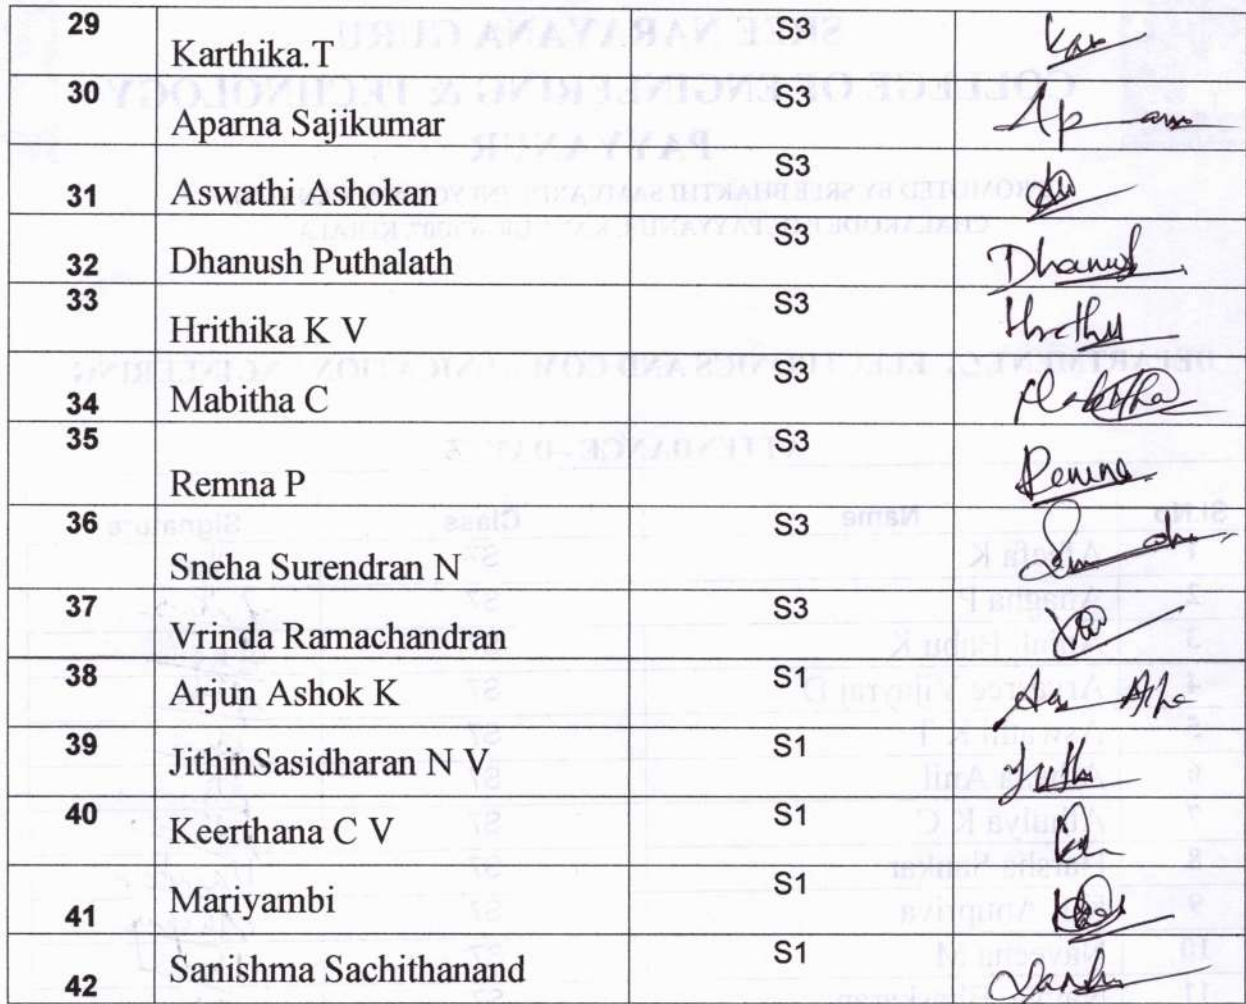 29 Karthika.T S3 Kar
30 Aparna Sajikumar S3 Ap
31 Aswathi Ashokan S3
32 Dhanush Puthalath S3 Dhanush
33 Hrithika K V S3
34 Mabitha C S3 Mabitha
35 Remna P S3 Remna
36 Sneha Surendran N S3
37 Vrinda Ramachandran S3
38 Arjun Ashok K S1
39 JithinSasidharan N V S1
40 Keerthana C V S1
41 Mariyambi S1
42 Sanishma Sachithanand S1